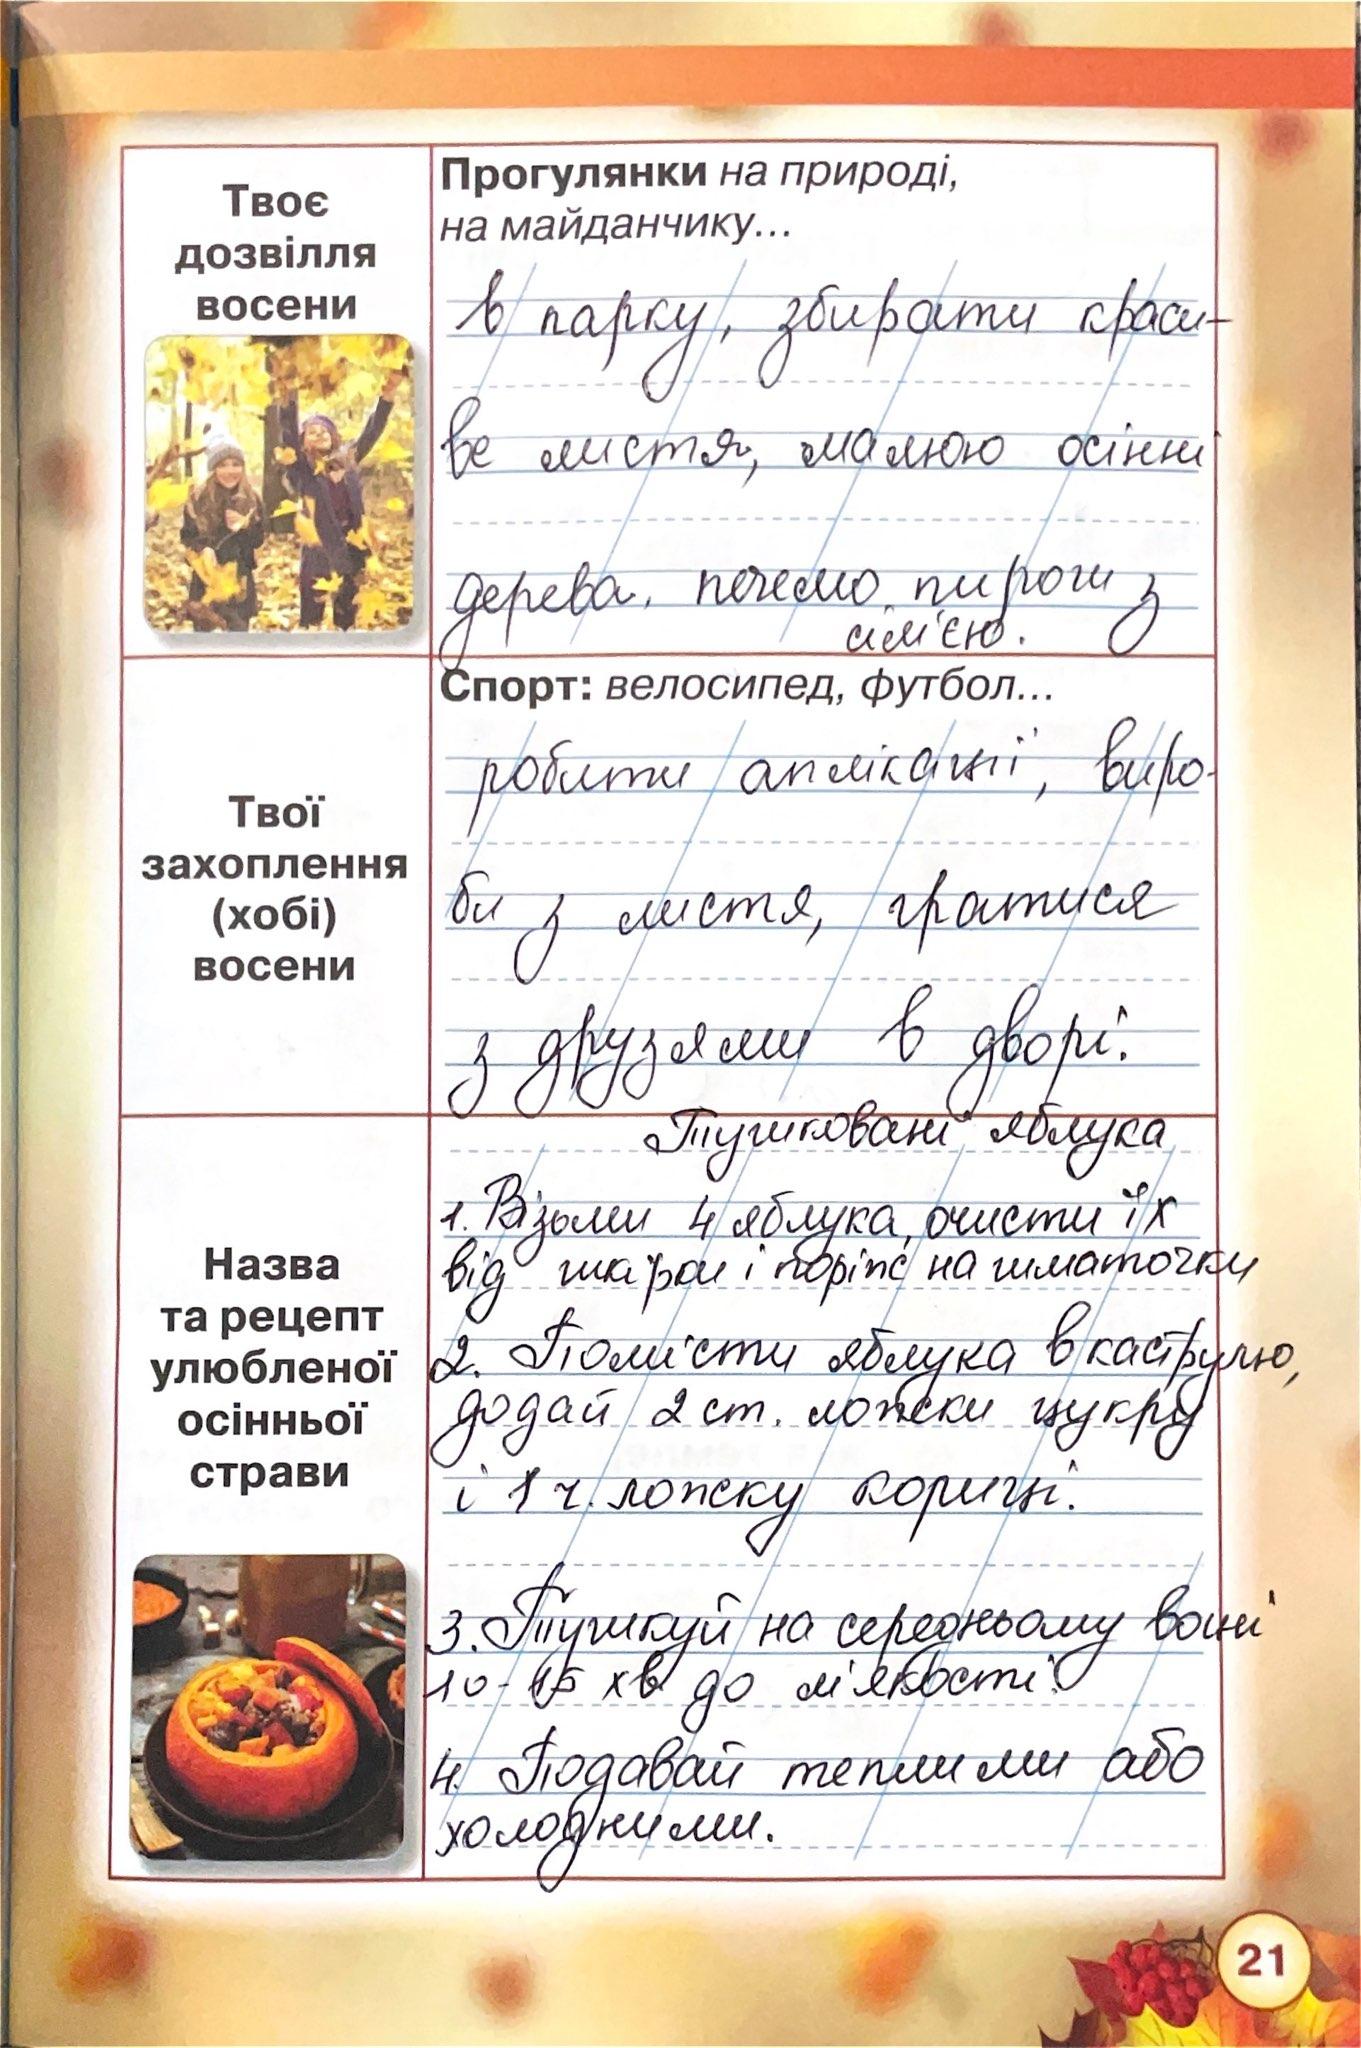 Твоє
дозвілля
восени
Прогулянки на природі,
на майданчику...
в парку, збирати краси-
ве листя, малюю осінні
дерева. печемо пироги з
сім'єю.
Твої
захоплення
(хобі)
восени
Спорт: велосипед, футбол...
робити аплікації, виро-
би з листя, гратися
з друзями в дворі.
Назва
та рецепт
улюбленої
осінньої
страви
Тушковані яблука
1. Візьми 4 яблука, очисти їх
від шкірки і поріж на шматочки
2. Помісти яблука в каструлю,
додай 2 ст. ложки цукру
і 1 ч. ложку кориці.
3. Тушкуй на середньому вогні
10-15 хв до м'якості.
4. Подавай теплими або
холодними.
21